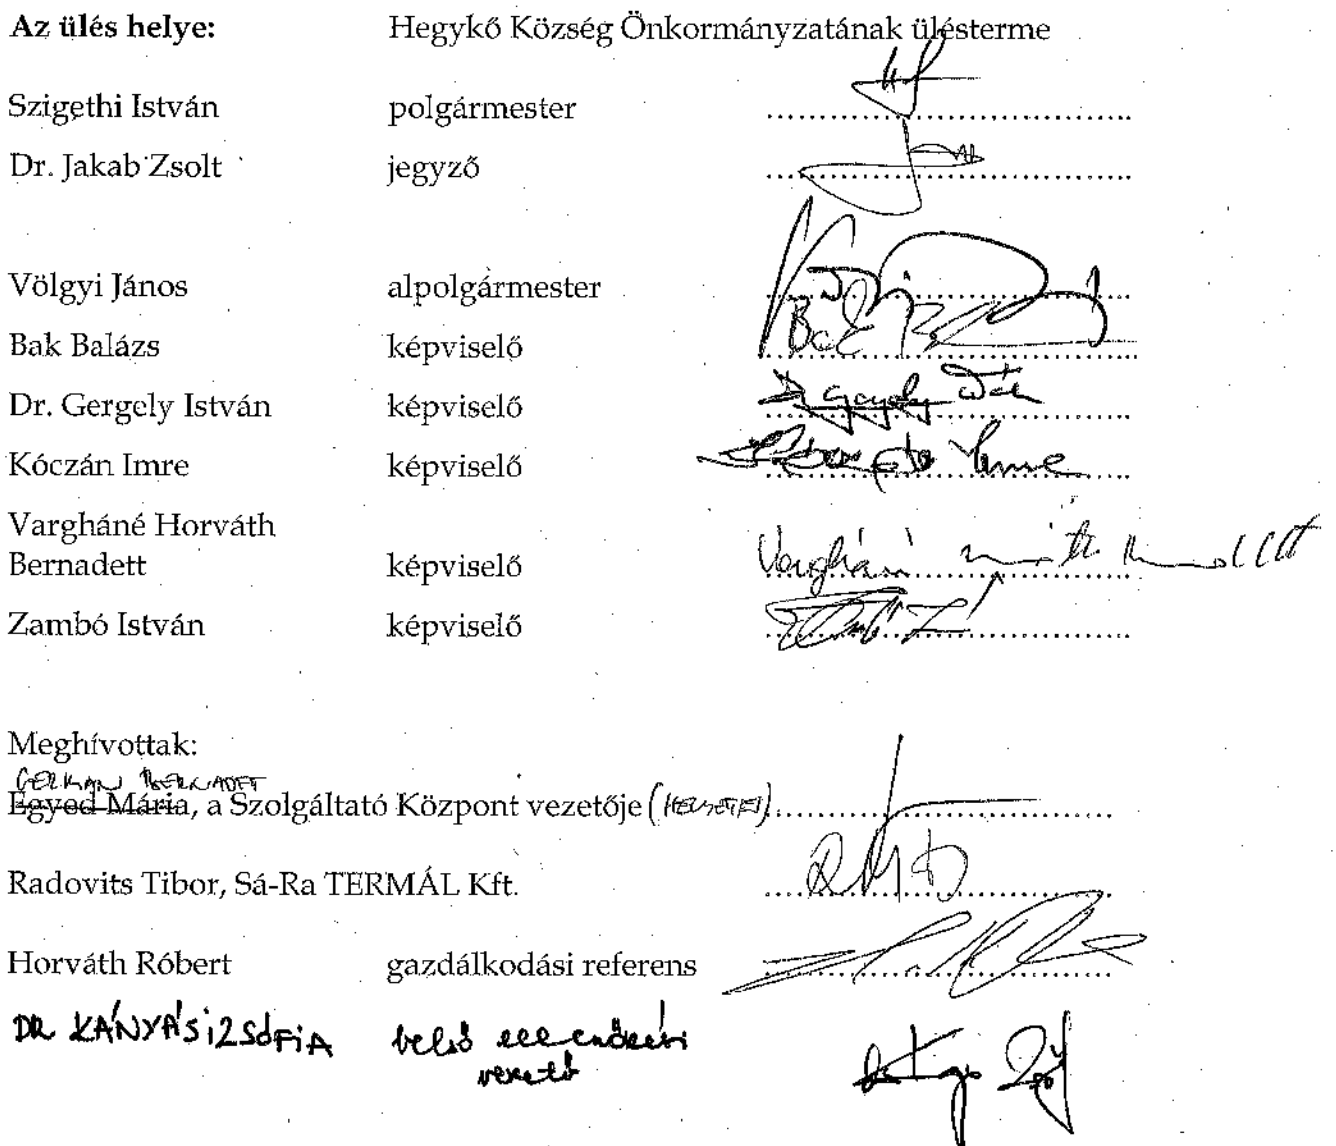 Az ülés helye: Hegykő Község Önkormányzatának ülésterme
Szigethi István polgármester
Dr. Jakab Zsolt jegyző
Völgyi János alpolgármester
Bak Balázs képviselő
Dr. Gergely István képviselő
Kóczán Imre képviselő
Vargháné Horváth
Bernadett képviselő
Zambó István képviselő
Meghívottak:
Egyed Mária, a Szolgáltató Központ vezetője
Radovits Tibor, Sá-Ra TERMÁL Kft.
Horváth Róbert gazdálkodási referens
DR KÁNYÁSI ZSÓFIA belső ellenőrzési
vezető